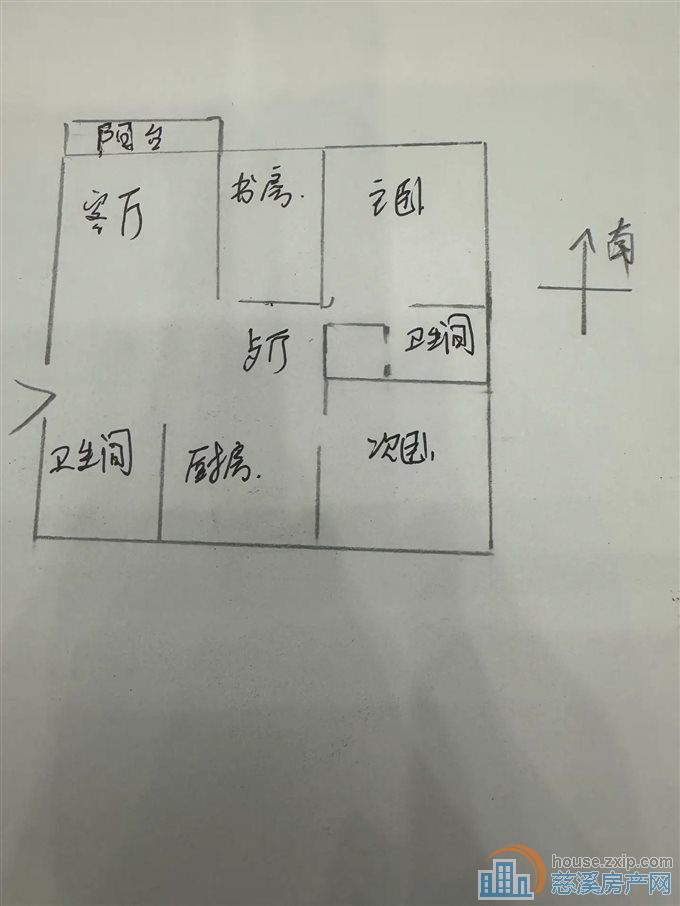 阳台
客厅
书房.
主卧
南
歺厅
卫生间
卫生间
厨房.
次卧.
house.zxip.com
慈溪房产网